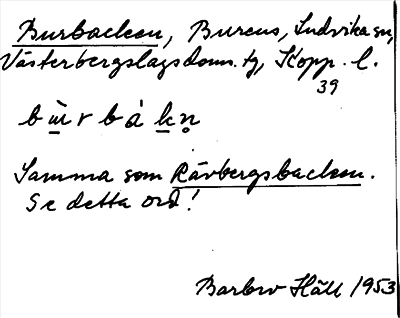 Burbacken, Burens, Ludvika sn,
Västerbergslags doms. tg, Kopp. l.
39
Samma som Rävbergsbacken.
Se detta ord!
Barbro Häll 1953